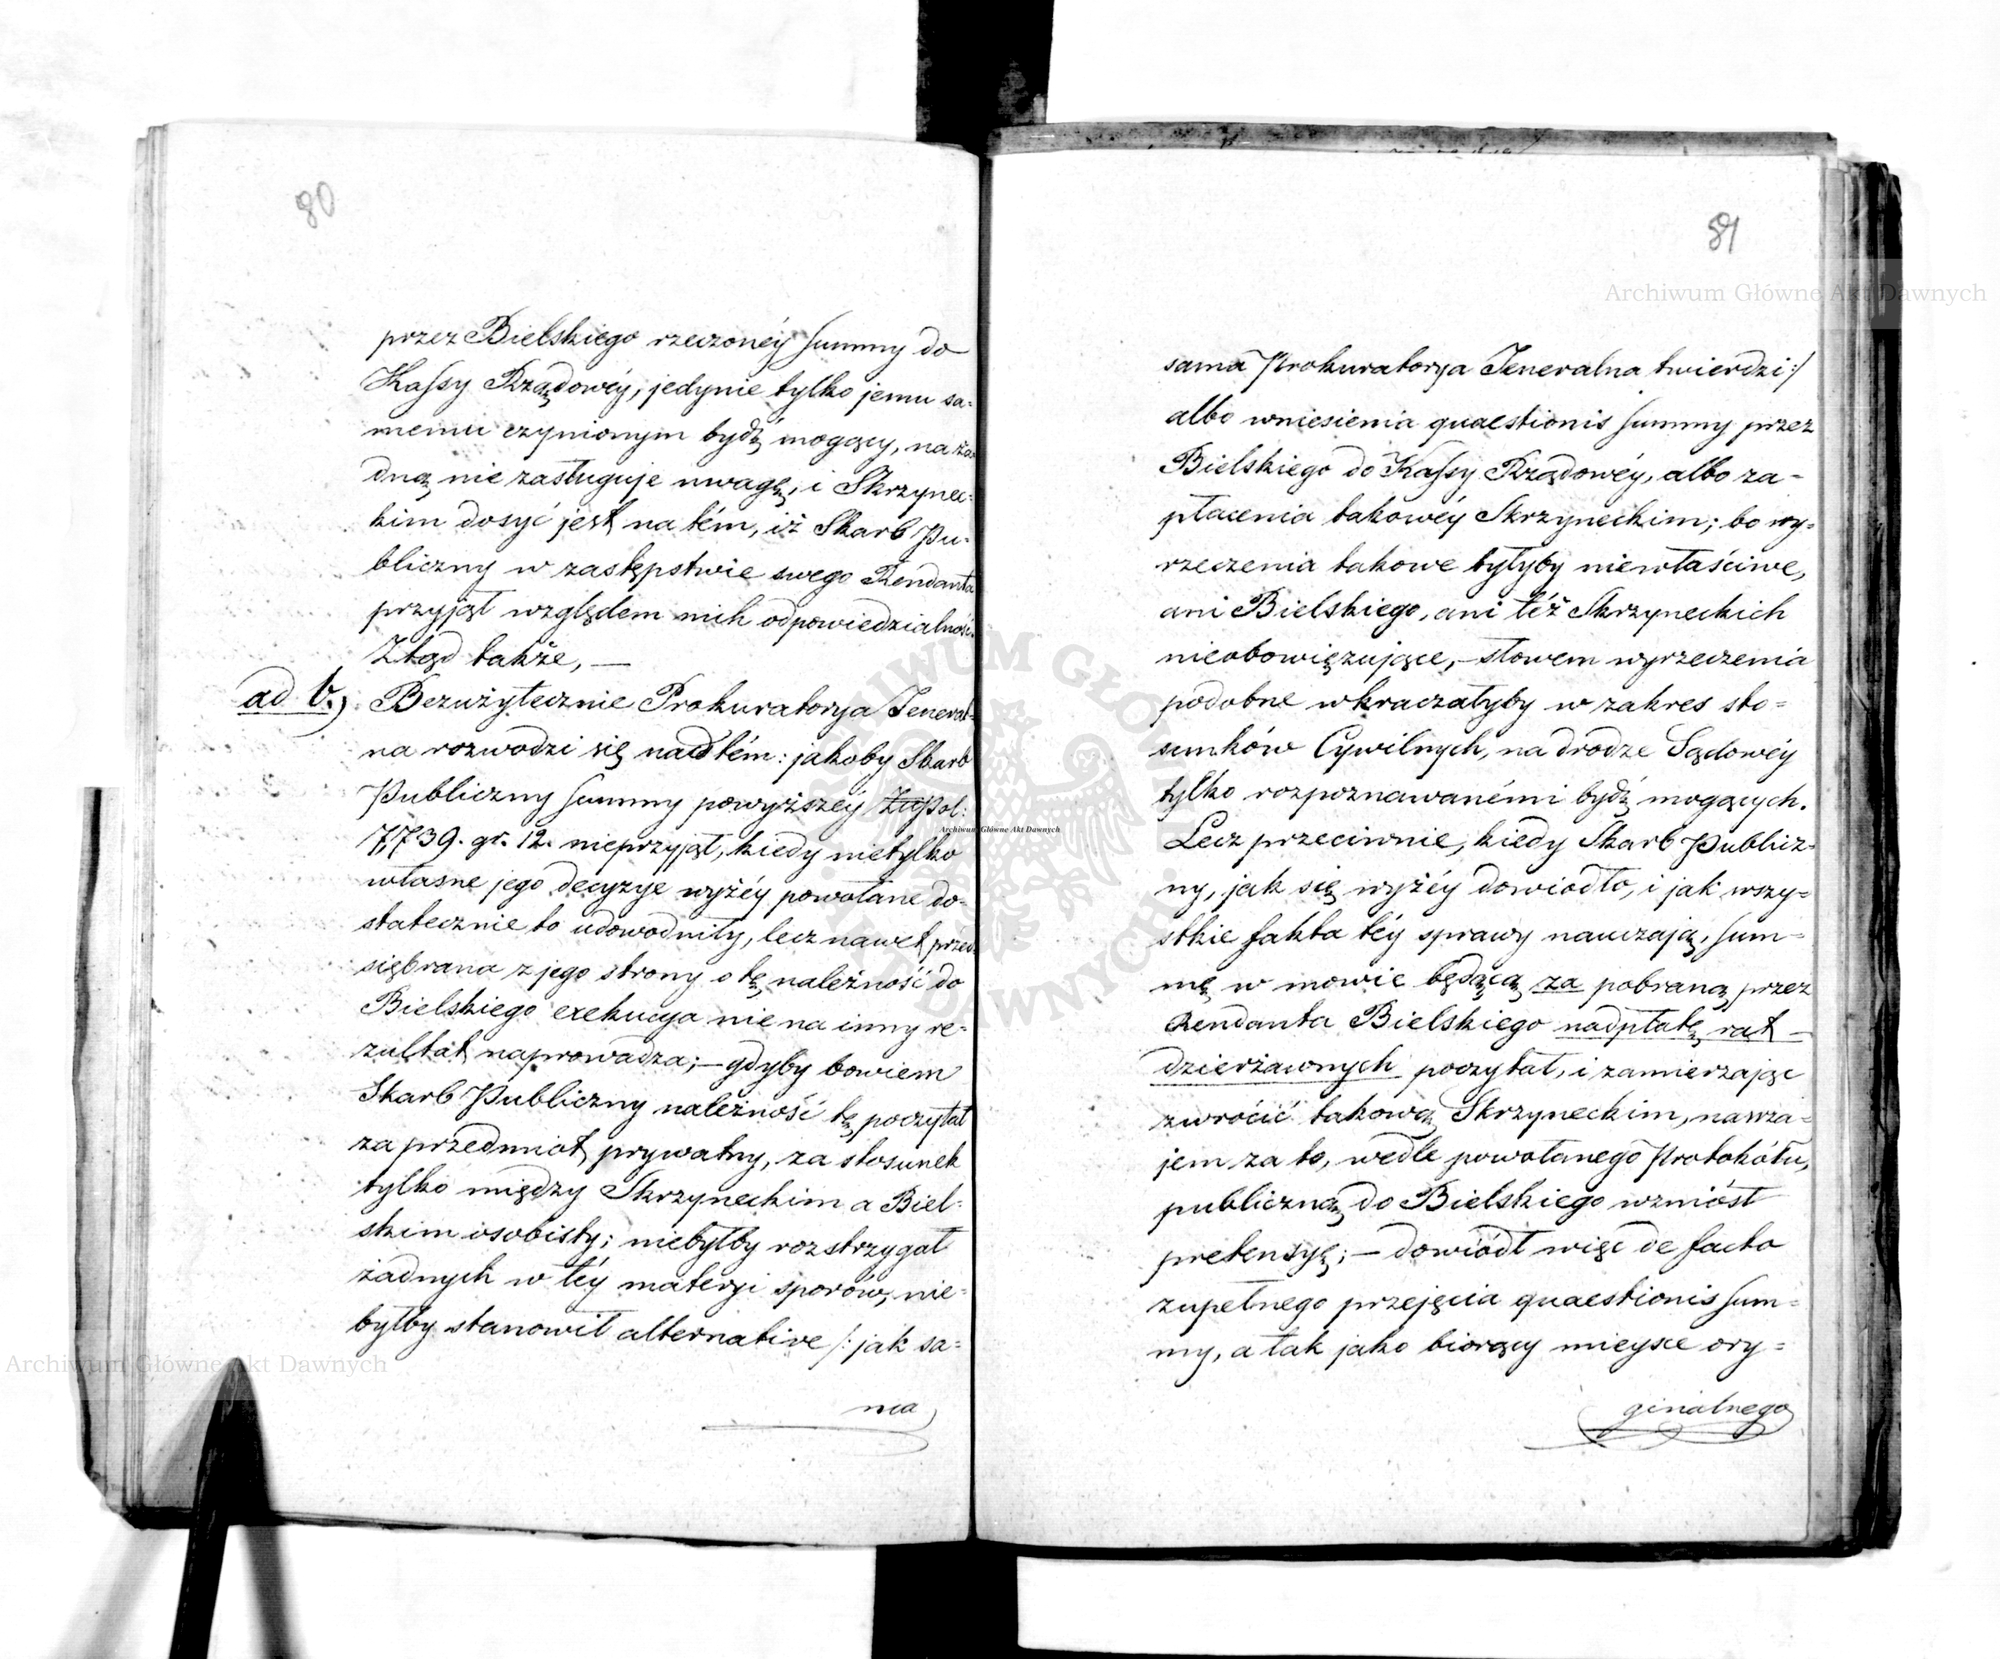 80
przez Bielskiego rzeczonéy summy do
Kassy Rządowéy, jedynie tylko jemu sa=
memu czynionym bydź mogący, na ża
dną nie zasługuje uwagę, i Skrzynec=
kim dosyć jest na tém, iż Skarb Pu=
bliczny w zastępstwie swego Rendanta
przyjął względem nich odpowiedzialność.
Ztąd także, —
ad b.) Bezużytecznie Prokuratorya Jeneral=
na rozwodzi się nad tém: jakoby Skarb
Publiczny summy powyższéy Złpol:
7,739. gr. 12. nieprzyjął, kiedy nietylko
własne jego decyzye wyżéy powołane do=
statecznie to udowodniły, lecz nawet przed
siębrana z jego strony o tę należność do
Bielskiego exekucya nie na inny re=
zultat naprowadza; — gdyby bowiem
Skarb Publiczny należność tę poczytał
za przedmiot prywatny, za stosunek
tylko między Skrzyneckim a Biel=
skim osobisty; niebyłby rozstrzygał
żadnych w téy materyi sporów, nie=
byłby stanowił alternative /: jak sa=
ma
81
sama Prokuratorya Jeneralna twierdzi :/
albo wniesienia quaestionis summy przez
Bielskiego do Kassy Rządowéy, albo za=
płacenia takowéy Skrzyneckim; bo wy=
rzeczenia takowe byłyby niewłaściwe,
ani Bielskiego, ani też Skrzyneckich
nieobowiązujące, — słowem wyrzeczenia
podobne wkraczałyby w zakres sto=
sunków Cywilnych, na drodze Sądowéy
tylko rozpoznawanémi bydź mogących.
Lecz przeciwnie, kiedy Skarb Publicz=
ny, jak się wyżéy dowiodło, i jak wszy=
stkie fakta téy sprawy nauczają, sum=
mę w mowie będącą za pobraną przez
Rendanta Bielskiego nadpłatę rat
dzierżawnych poczytał, i zamierzając
zwrócić takową Skrzyneckim, nawza=
jem za to, wedle powołanego Protokółu,
publiczną do Bielskiego wzniósł
pretensyę; — dowiódł więc de facto
zupełnego przejęcia quaestionis sum=
my, a tak jako biorący mieysce ory=
ginalnego
Archiwum Główne Akt Dawnych
Archiwum Główne Akt Dawnych
Archiwum Główne Akt Dawnych
ARCHIWUM GŁÓWNE AKT DAWNYCH